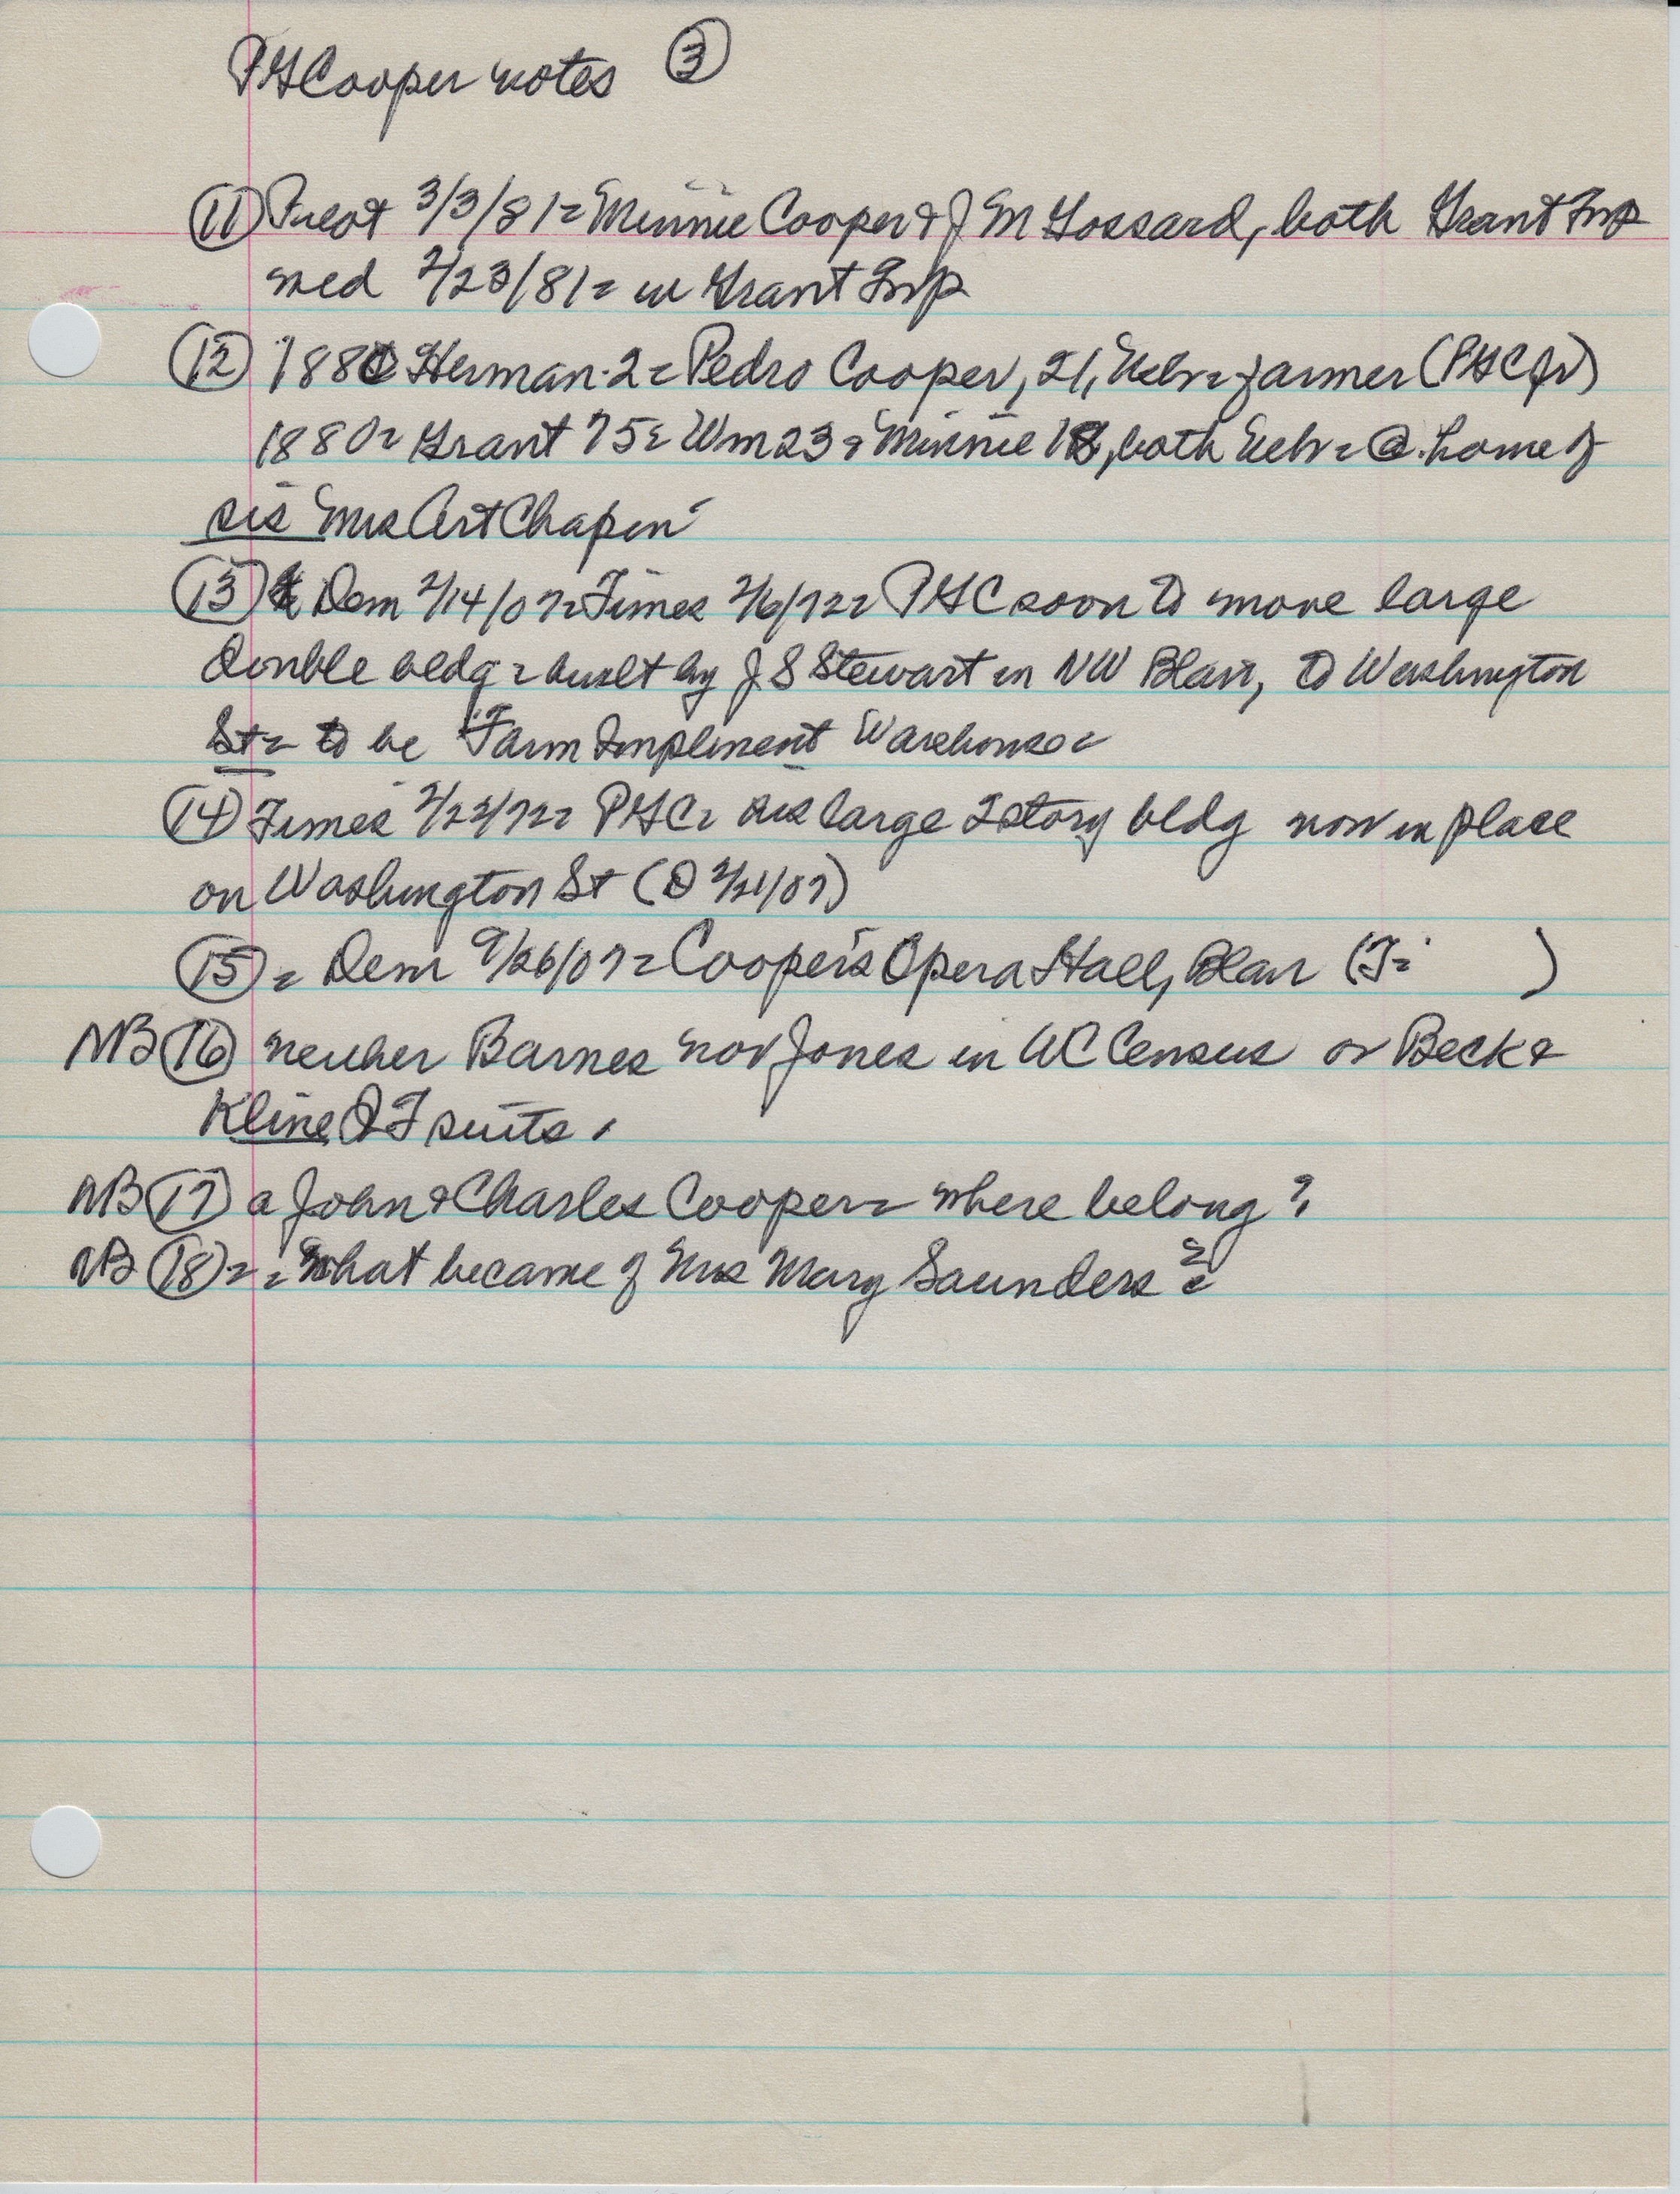 PH Cooper notes ③
⑪ Pilot 3/3/81= Minnie Cooper & J M Gossard, both Grant Twp
wed 2/23/81= in Grant Twp
⑫ 1880 Herman-2= Pedro Cooper, 21, Neb= farmer (PHC Jr)
1880= Grant 75= Wm 23 = Minnie 18, both Neb= @ home of
sis Mrs Art Chapin
⑬ Dem 2/14/07= Times 2/6/72= PHC soon to move large
double bldg = built by J S Stewart in NW Blair, to Washington
St= to be Farm Impliment Warehouse=
⑭ Times 2/22/72= PHC= his large 2 story bldg now in place
on Washington St (D 2/21/07)
⑮ = Dem 9/26/07= Cooper's Opera Hall, Blair (T= )
NB ⑯ neither Barnes nor Jones in WC Census or Beck &
Kline suits.
NB ⑰ a John & Charles Cooper= where belong?
NB ⑱ = = What became of Mrs Mary Saunders?